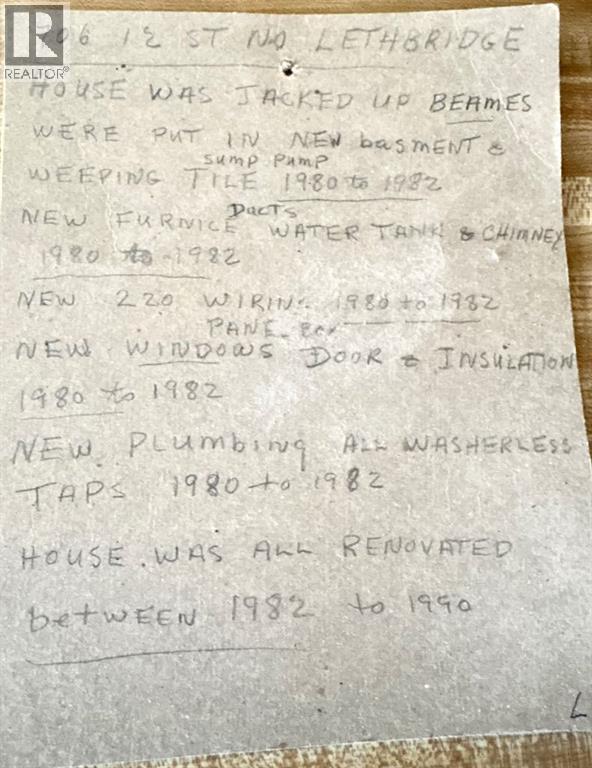 REALTOR®
06 12 ST NO LETHBRIDGE
HOUSE WAS JACKED UP BEAMES
WERE PUT IN NEW basMENT &
SUMP PUMP
WEEPING TILE 1980 to 1982
DUCTS
NEW FURNICE WATER TANK & CHIMNEY
1980 to 1982
NEW 220 WIRING 1980 to 1982
PANE BOX
NEW WINDOWS DOOR & INSULATION
1980 to 1982
NEW PLumbing ALL WASHERLESS
TAPS 1980 to 1982
HOUSE WAS ALL RENOVATED
between 1982 to 1990
L